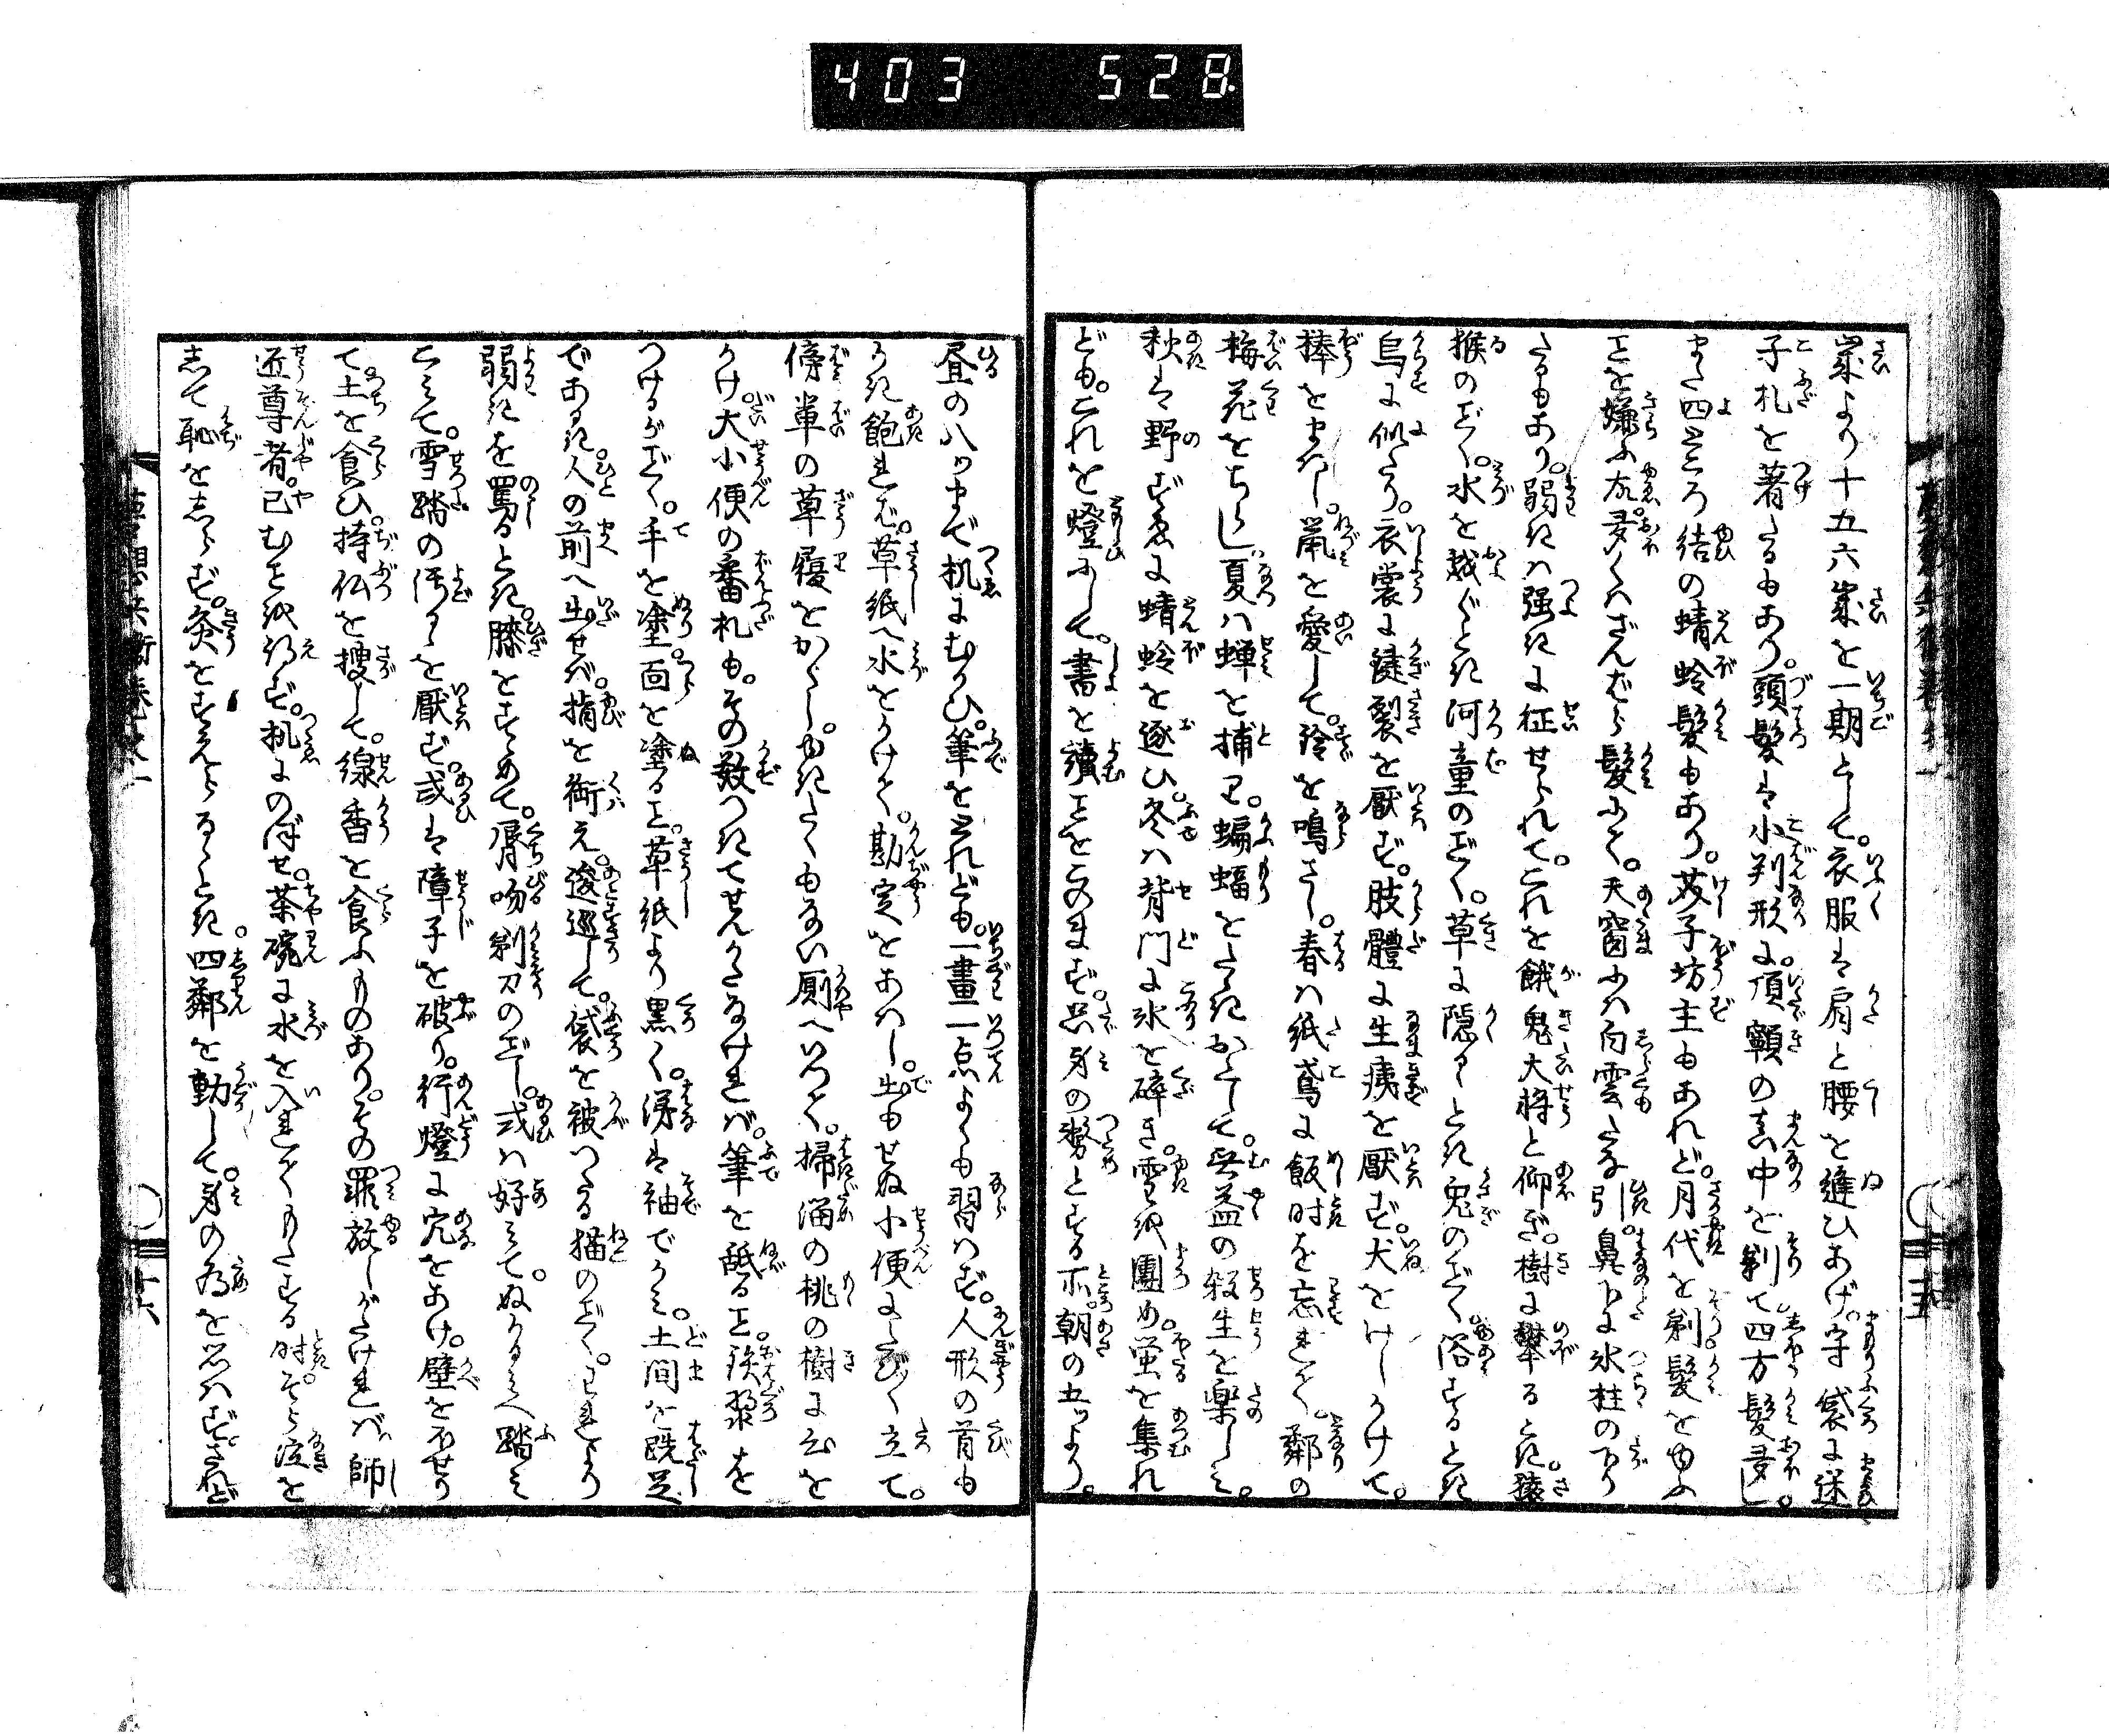 403 528
歳より十五六歳を一期として。衣服は肩と腰を縫ひあげ。守袋に迷
子札を著たるもあり。頭髪は小判形に。頂顖の真中を剃て四方髪多し。
また四ところ結の蜻蛉髪もあり。芥子坊主もあれど。月代を剃髪をゆふ
ことを嫌ふ故。多くはざんばら髪にて。天窗には白雲たな引。鼻下に氷柱の下り
たるもあり。弱きは強きに征せられて。これを餓鬼大将と仰ぎ。樹に攀るとき。猿
猴のごとく。水を越ぐとき河童のごとく。草に隠るゝとき兎のごとく浴するとき
烏に似たり。衣裳に鍵裂を厭ず。肢體に生痍を厭ず。犬をけしかけて。
棒をまはし。鼠を愛して。鈴を鳴らし。春は紙鳶に飯時を忘れて。鄰の
梅花をちらし夏は蝉を捕り。蝙蝠をたゝきおとして。無益の殺生を楽しみ。
秋は野ずゑに蜻蛉を逐ひ。冬は背門に氷を砕き。雪を團め。蛍を集れ
ども。これを燈にして。書を讀ことをこのまず。只身の勤とする所。朝の五ツより。
昼の八ツまで机にむかひ。筆をとれども。一畫一点よくも習はず。人形の首も
かき飽れば。草紙へ水をかけて。勘定をあはし。出もせぬ小便にたび〳〵立て。
傍輩の草履をかくし。ゆきたくもない厠へいつて。掃溜の桃の樹に尿を
かけ。大小便の番札も。その数つきてせんかたなければ。筆を舐ると。鉄漿を
つけるがごとく。手を塗。面を塗ると。草紙より黒く。洟は袖でかみ。土間を跣足
であるき。人の前へ出せば。指を銜え。逡巡して。袋を被つたる猫のごとく。われより
弱きを罵るとき。膝をすゝめて。唇吻剃刀のごとし。或は好みて。ぬかるみへ踏み
こみて。雪踏の汚るゝを厭ず。或は障子を破り。行燈に穴をあけ。壁をむせり
て土を食ひ。持仏を捜して。線香を食ふものあり。その罪放しがたければ。師
匠尊者。已むことを得ず。机にのぼせ。茶碗に水を入れてもたする時。そら泣を
して恥をしらず。灸をすえらるゝとき。四鄰を動して。身の為を思はず。されど
十五
十六